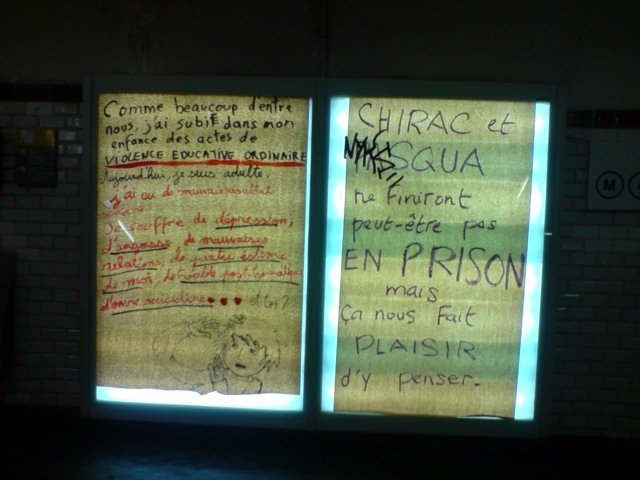 Comme beaucoup d'entre
nous, j'ai subit dans mon
enfance des actes de
VIOLENCE EDUCATIVE ORDINAIRE
Aujourd'hui, je suis adulte.
j'ai eu de mauvais
Je souffre de dépression,
d'angoisse, de mauvaises
relations, de piètre estime
de moi, de trouble post-traumatique
et toi ?
CHIRAC et
SQUA
ne finiront
peut-être pas
EN PRISON
mais
ça nous fait
PLAISIR
d'y penser.
M